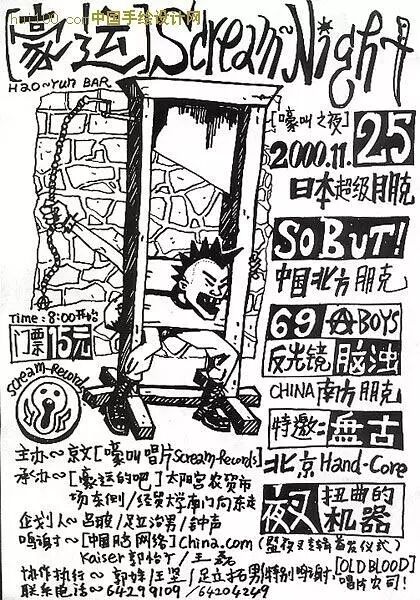 hui100.com中国手绘设计网
[豪运] Scream~Night
Hao~Yun BAR
[嚎叫之夜]
2000.11.25
日本超级朋克
SOBUT!
中国北方朋克
69 BOYS
反光镜 脑浊
CHINA南方朋克
特邀:盘古
北京Hand-Core
夜叉 扭曲的机器
Time:8:00开始
门票 15元
Scream-Records
主办~京文[嚎叫唱片Scream-Records]
承办~[豪运酒吧]太阳宫农贸市
场东侧/经贸大学南门向东走
企划人~吕玻/足立治男/钟声
鸣谢~[中国脑网络]China.com(盘夜叉专辑首发仪式)
Kaiser郭怡广/王磊
协作执行~郭妹/王坚/足立拓男特别鸣谢:[OLD BLOOD]唱片公司!
联系电话~64299109/64204249